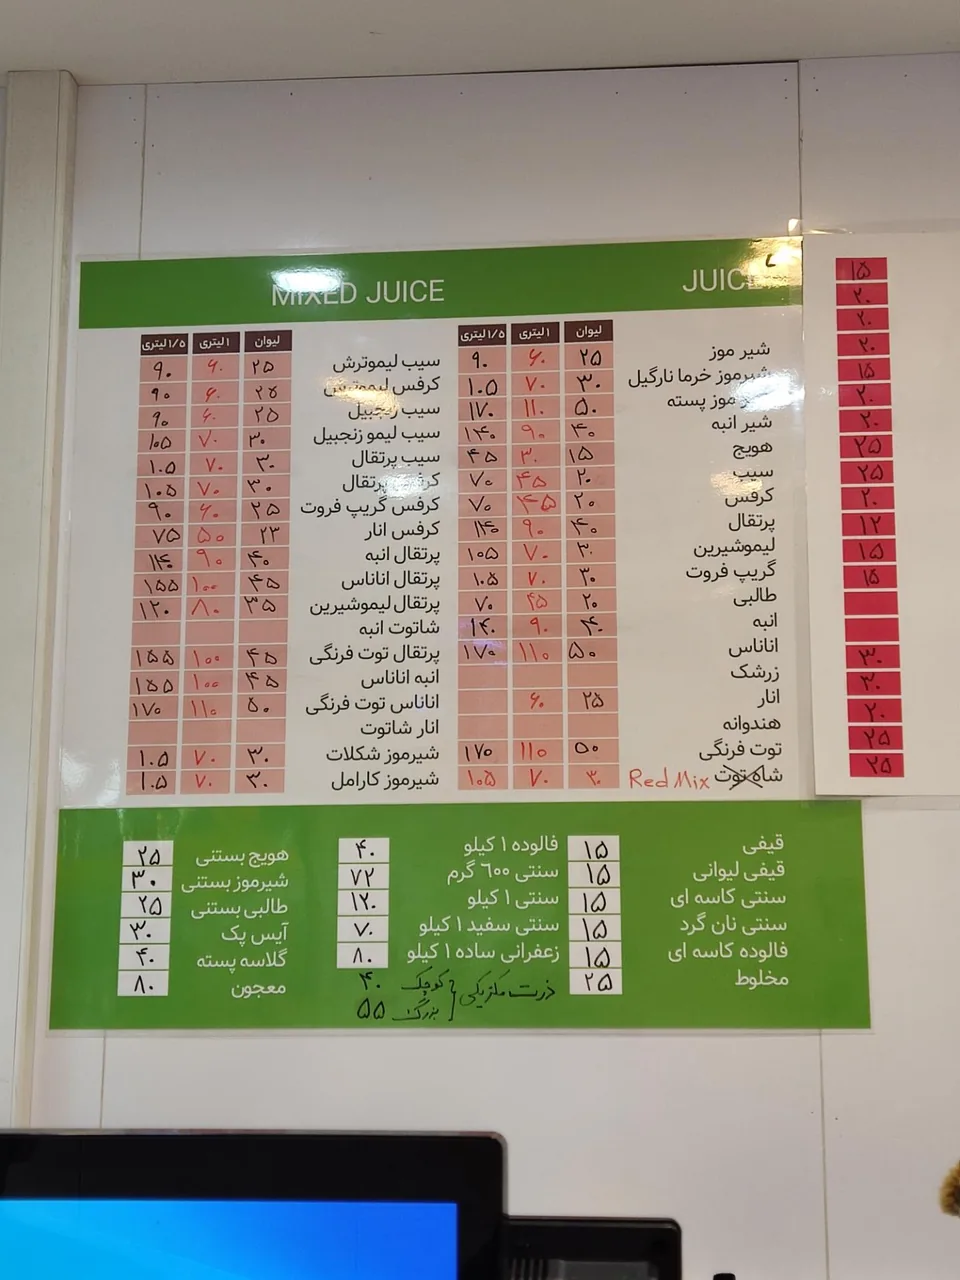 JUICE
لیوان ۱لیتری ۱/۵لیتری
شیر موز ۲۵ ۶۰ ۹۰
شیرموز خرما نارگیل ۳۰ ۷۰ ۱۰۵
موز پسته ۵۰ ۱۱۰ ۱۷۰
شیر انبه ۴۰ ۹۰ ۱۴۰
هویج ۱۵ ۳۰ ۴۵
سیب ۲۰ ۴۵ ۷۰
کرفس ۲۰ ۴۵ ۷۰
پرتقال ۴۰ ۹۰ ۱۴۰
لیموشیرین ۳۰ ۷۰ ۱۰۵
گریپ فروت ۳۰ ۷۰ ۱۰۵
طالبی ۲۰ ۴۵ ۷۰
انبه ۴۰ ۹۰ ۱۴۰
اناناس ۵۰ ۱۱۰ ۱۷۰
زرشک
انار ۲۵ ۶۰
هندوانه
توت فرنگی ۵۰ ۱۱۰ ۱۷۰
شاه توت Red Mix ۳۰ ۷۰ ۱۰۵
MIXED JUICE
لیوان ۱لیتری ۱/۵لیتری
سیب لیموترش ۲۵ ۶۰ ۹۰
کرفس لیموترش ۲۵ ۶۰ ۹۰
سیب زنجبیل ۲۵ ۶۰ ۹۰
سیب لیمو زنجبیل ۳۰ ۷۰ ۱۰۵
سیب پرتقال ۳۰ ۷۰ ۱۰۵
کرفس پرتقال ۳۰ ۷۰ ۱۰۵
کرفس گریپ فروت ۲۵ ۶۰ ۹۰
کرفس انار ۲۳ ۵۰ ۷۵
پرتقال انبه ۴۰ ۹۰ ۱۴۰
پرتقال اناناس ۴۵ ۱۰۰ ۱۵۵
پرتقال لیموشیرین ۳۵ ۸۰ ۱۲۰
شاتوت انبه
پرتقال توت فرنگی ۴۵ ۱۰۰ ۱۵۵
انبه اناناس ۴۵ ۱۰۰ ۱۵۵
اناناس توت فرنگی ۵۰ ۱۱۰ ۱۷۰
انار شاتوت
شیرموز شکلات ۳۰ ۷۰ ۱۰۵
شیرموز کارامل ۳۰ ۷۰ ۱۰۵
قیفی ۱۵
قیفی لیوانی ۱۵
سنتی کاسه ای ۱۵
سنتی نان گرد ۱۵
فالوده کاسه ای ۱۵
مخلوط ۲۵
فالوده ۱ کیلو ۴۰
سنتی ۶۰۰ گرم ۷۲
سنتی ۱ کیلو ۱۲۰
سنتی سفید ۱ کیلو ۷۰
زعفرانی ساده ۱ کیلو ۸۰
ذرت مکزیکی { کوچک ۴۰
بزرگ ۵۵
هویج بستنی ۲۵
شیرموز بستنی ۳۰
طالبی بستنی ۲۵
آیس پک ۳۰
گلاسه پسته ۴۰
معجون ۸۰
۱۵
۲۰
۲۰
۲۰
۱۵
۲۰
۲۰
۲۵
۲۵
۲۰
۱۲
۱۵
۱۵
۳۰
۳۰
۲۰
۲۵
۲۵